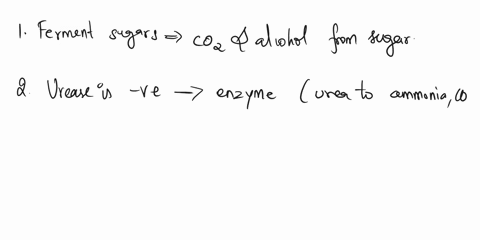 1. Ferment sugars ⇒ CO2 & alcohol from sugar.
2. Urease is -ve → enzyme (urea to ammonia, CO